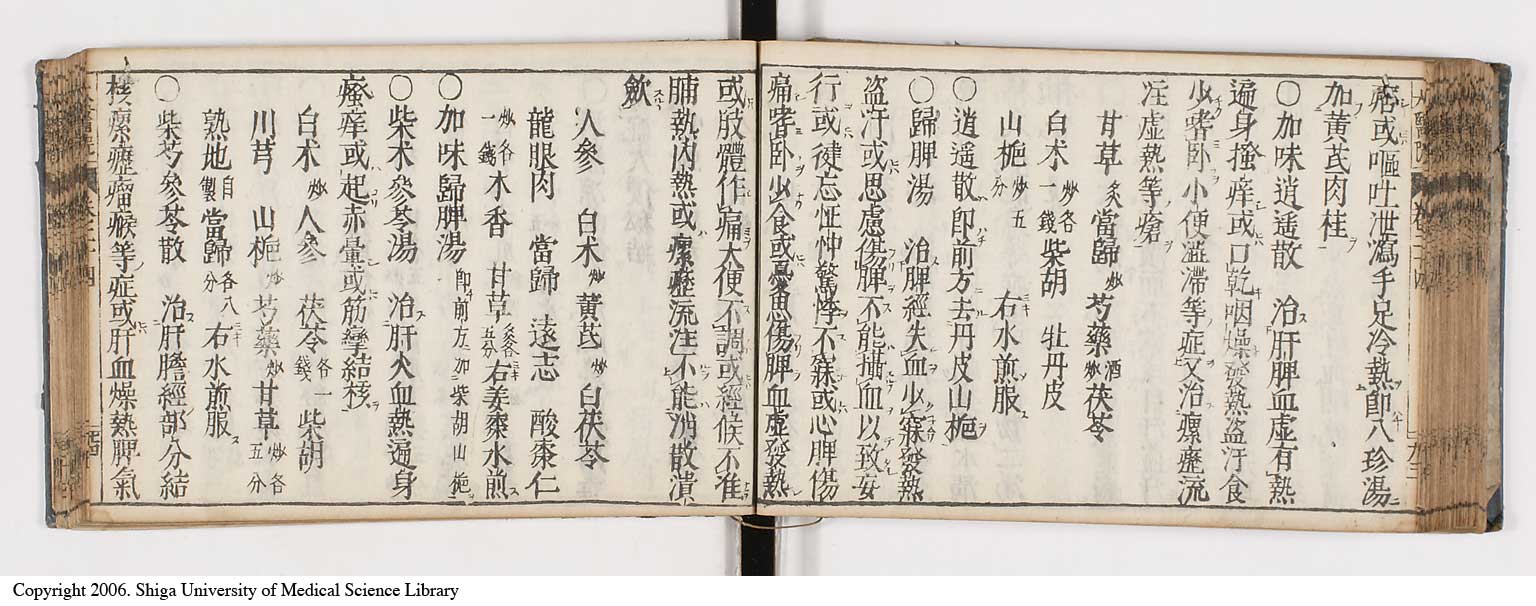 瘡或嘔吐泄瀉手足冷熱即八珍湯
加黃芪肉桂
○加味逍遥散 治肝脾血虛有熱
遍身搔痒或口乾咽燥發熱盗汗食
少嗜卧小便澁滯等症又治瘰癧流
注虛熱等瘡
甘草炙當歸炒芍藥酒炒茯苓
白朮炒各一錢柴胡 牡丹皮
山梔炒五分 右水煎服
○逍遥散即前方去丹皮山梔
○歸脾湯 治脾經失血少寐發熱
盗汗或思慮傷脾不能攝血以致妄
行或徤忘怔忡驚悸不寐或心脾傷
痛嗜卧少食或憂思傷脾血虛發熱
或肢體作痛大便不調或經候不准
晡熱内熱或瘰癧流注不能消散潰
歛
人參 白朮炒黃芪炒白茯苓
龍眼肉 當歸 遠志 酸棗仁
炒各一錢木香 甘草炙各五分右姜棗水煎
○加味歸脾湯即前方加柴胡山梔
○柴朮參苓湯 治肝火血熱遍身
瘙痒或起赤暈或筋攣結核
白朮炒人參 茯苓各一錢柴胡
川芎 山梔炒芍藥炒甘草炒各五分
熟地自製當歸各八分右水煎服
○柴芍參苓散 治肝膽經部分結
核瘰癧瘤瘊等症或肝血燥熱脾氣
Copyright 2006. Shiga University of Medical Science Library